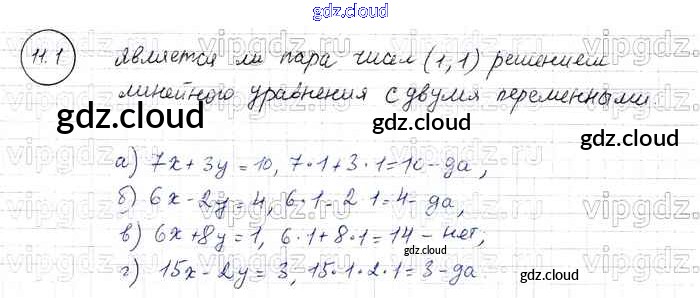 gdz.cloud
11.1 является ли пара чисел (1,1) решением
линейного уравнения с двумя переменными.
gdz.cloud
gdz.cloud
а) 7x + 3y = 10, 7·1+3·1=10-да,
б) 6x - 2y = 4, 6·1-2 1=4-да,
gdz.cloud
в) 6x+8y=1, 6·1+8·1=14-нет,
gdz.cloud
г) 15x-2y=3, 15·1·2·1=3-да.
gdz.cloud